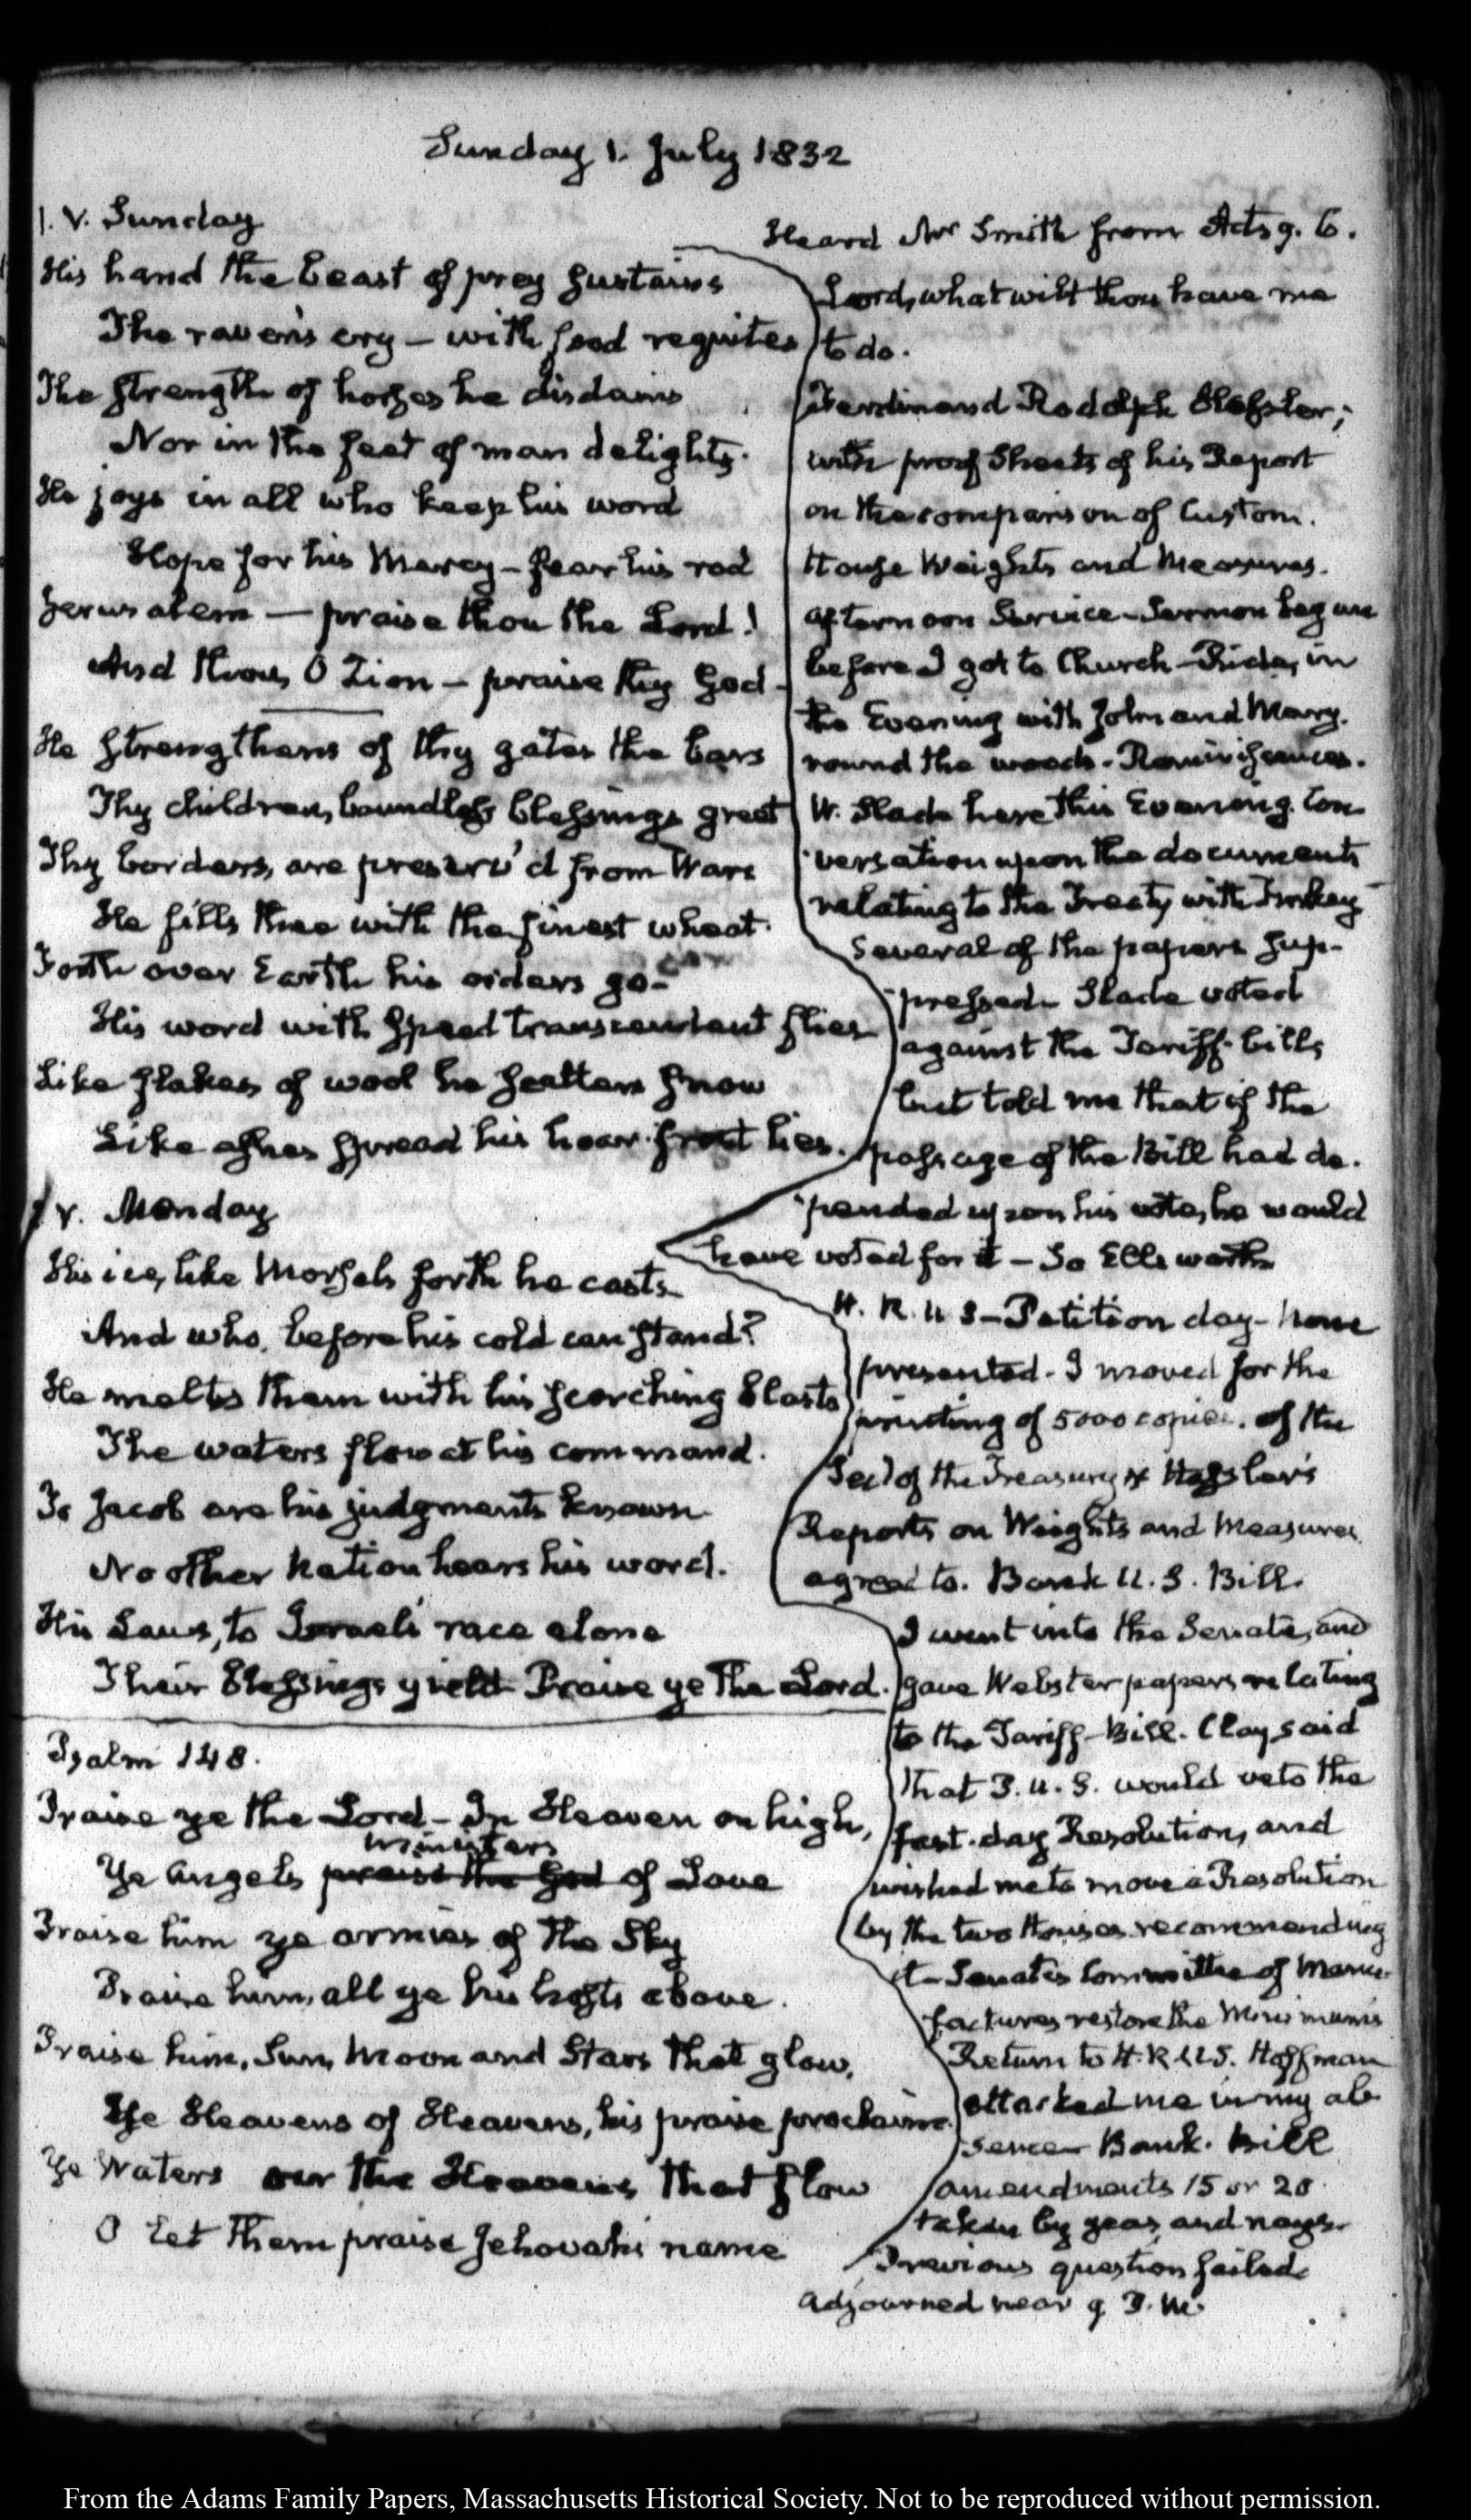 Sunday 1. July 1832
1. V. Sunday
His hand the beast of prey sustains
The raven's cry — with food requites
The strength of horses he disdains
Nor in the feet of man delights.
He joys in all who keep his word
Hope for his Mercy — fear his rod
Jerusalem — praise thou the Lord!
And thou, O Zion — praise thy God —
He strengthens of thy gates the bars
Thy children, boundless blessings greet
Thy borders, are preserv'd from Wars
He fills thee with the finest wheat.
Forth over Earth his orders go—
His word with speed transcendent flies
Like flakes of wool he scatters snow
Like ashes spread his hoar-frost lies.
V. Monday
His ice, like Morsels forth he casts
And who, before his cold can stand?
He melts them with his scorching blasts
The waters flow at his command.
To Jacob are his judgments known
No other Nation hears his word.
His Laws, to Israel's race alone
Their Blessings yield Praise ye the Lord.
Psalm 148.
Praise ye the Lord — In Heaven on high,
ministers
Ye Angels praise the God of Love
Praise him ye armies of the Sky
Praise him, all ye his hosts above.
Praise him, Sun, Moon and Stars that glow,
Ye Heavens of Heavens, his praise proclaim
Ye Waters our the Heavens that flow
O let them praise Jehovah's name
Heard Mr Smith from Acts 9. 6.
Lord, what wilt thou have me
to do.
Ferdinand Rodolph Hassler;
with proof Sheets of his Report
on the comparison of Custom.
House Weights and Measures.
Afternoon Service — Sermon begun
before I got to Church — Ride, in
the Evening with John and Mary.
round the woods. Reminiscences.
W. Slade here this Evening. Con
versation upon the documents
relating to the Treaty with Turkey
Several of the papers sup-
pressed — Slade voted
against the Tariff-bill,
but told me that if the
passage of the Bill had de.
pended upon his vote, he would
have voted for it — So Ellsworth
H. R. U S — Petition day — None
presented. I moved for the
printing of 5000 copies. of the
Secy of the Treasury & Hassler's
Reports on Weights and Measures
agreed to. Bank U. S. Bill.
I went into the Senate, and
gave Webster papers relating
to the Tariff-Bill. Clay said
that P. U. S. would veto the
fast-day Resolution, and
wished me to move a Resolution
by the two Houses recommending
it — Senate's Committee of Manu-
factures restore the Minimums
Return to H. R. U S. Hoffman
attacked me in my ab
sence — Bank. Bill
amendments 15 or 20
taken by yeas, and nays.
Previous question failed
Adjourned near 9 P. M.
From the Adams Family Papers, Massachusetts Historical Society. Not to be reproduced without permission.